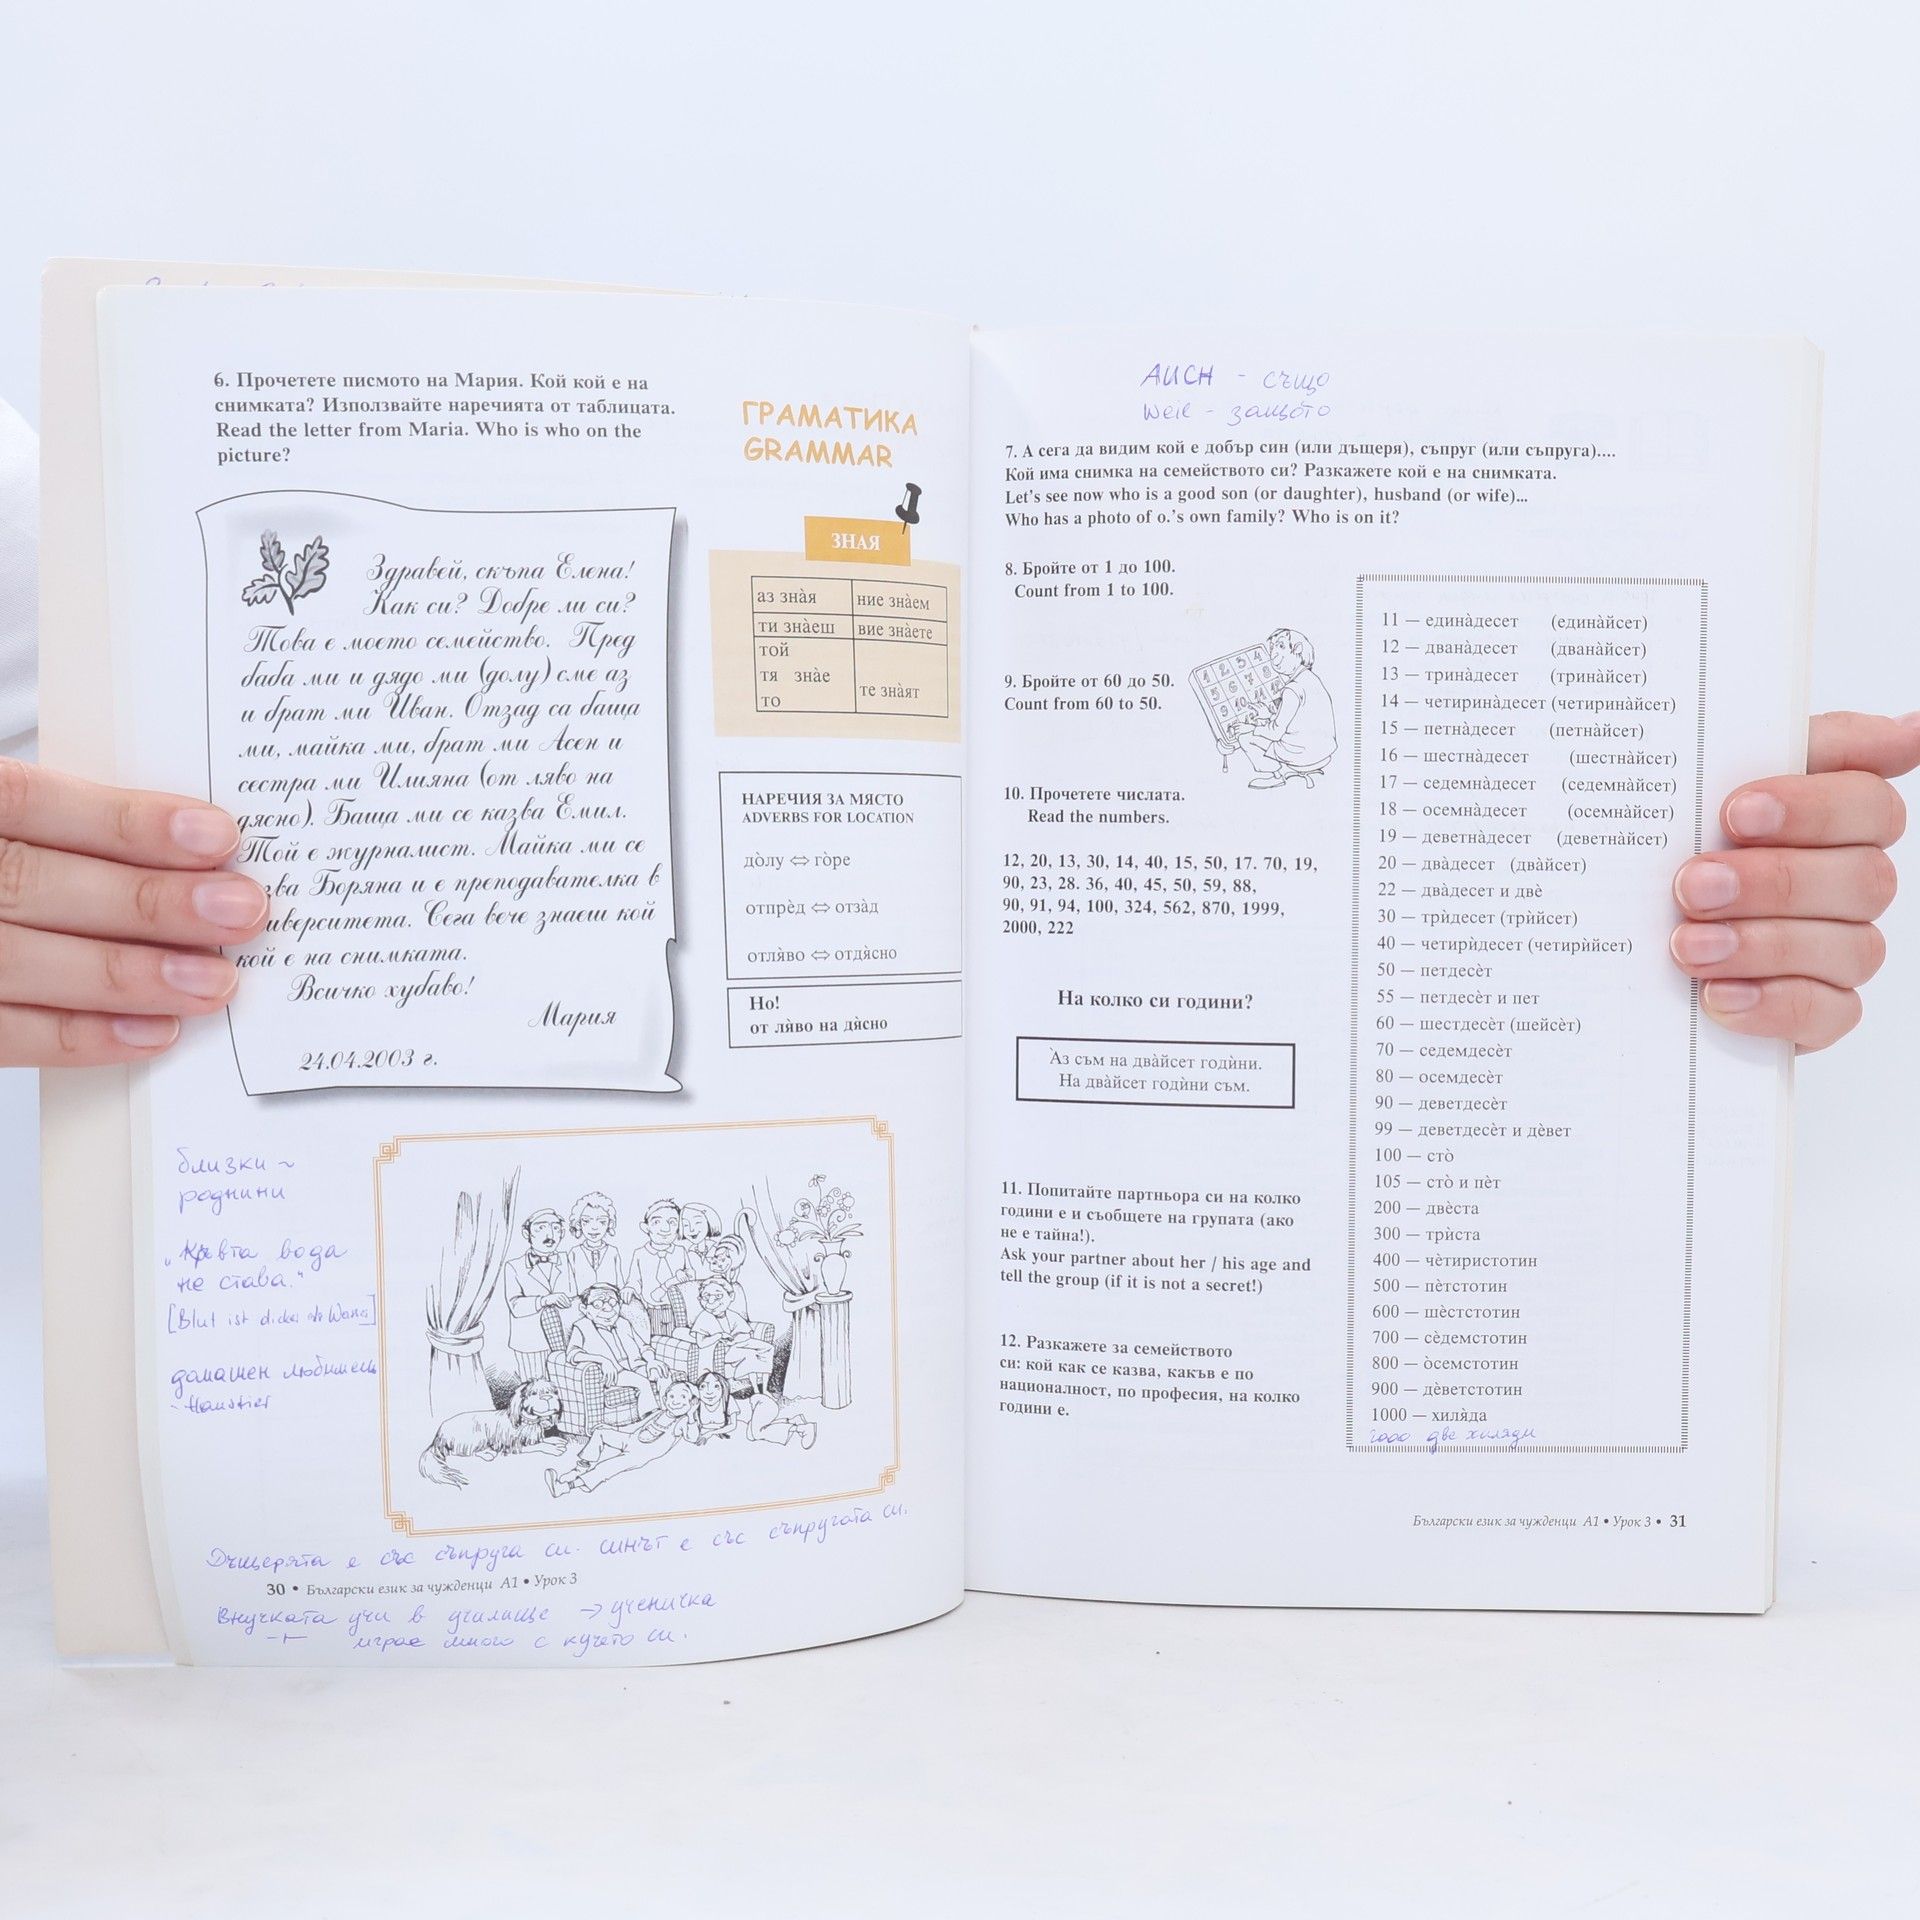 6. Прочетете писмото на Мария. Кой кой е на
снимката? Използвайте наречията от таблицата.
Read the letter from Maria. Who is who on the
picture?
Здравей, скъпа Елена!
Как си? Добре ли си?
Това е моето семейство. Пред
баба ми и дядо ми (долу) сме аз
и брат ми Иван. Отзад са баща
ми, майка ми, брат ми Асен и
сестра ми Илияна (от ляво на
дясно). Баща ми се казва Емил.
Той е журналист. Майка ми се
Боряна и е преподавателка в
Сега вече знаеш кой
кой е на снимката.
Всичко хубаво!
Мария
24.04.2003 г.
ГРАМАТИКА
GRAMMAR
ЗНАЯ
аз зна̀я ние зна̀ем
ти зна̀еш вие зна̀ете
той
тя зна̀е те зна̀ят
то
НАРЕЧИЯ ЗА МЯСТО
ADVERBS FOR LOCATION
до̀лу ⇔ го̀ре
отпрѐд ⇔ отза̀д
отля̀во ⇔ отдя̀сно
Но!
от ля̀во на дя̀сно
близки ~
роднини
„Кръвта вода
не става."
[Blut ist dicker als Wasser]
домашен любимец
- Haustier
Дъщерята е със съпруга си. синът е със съпругата си.
30 • Български език за чужденци А1 • Урок 3
Внучката учи в училище → ученичка
играе много с кучето си.
АUCH - също
weil - защо̀то
7. А сега да видим кой е добър син (или дъщеря), съпруг (или съпруга)....
Кой има снимка на семейството си? Разкажете кой е на снимката.
Let's see now who is a good son (or daughter), husband (or wife)...
Who has a photo of o.'s own family? Who is on it?
8. Бройте от 1 до 100.
Count from 1 to 100.
9. Бройте от 60 до 50.
Count from 60 to 50.
1 2 3 4
5 6 7 8
9 10 11 12
10. Прочетете числата.
Read the numbers.
12, 20, 13, 30, 14, 40, 15, 50, 17. 70, 19,
90, 23, 28. 36, 40, 45, 50, 59, 88,
90, 91, 94, 100, 324, 562, 870, 1999,
2000, 222
На колко си години?
А̀з съм на два̀йсет годѝни.
На два̀йсет годѝни съм.
11. Попитайте партньора си на колко
години е и съобщете на групата (ако
не е тайна!).
Ask your partner about her / his age and
tell the group (if it is not a secret!)
12. Разкажете за семейството
си: кой как се казва, какъв е по
националност, по професия, на колко
години е.
11 — едина̀десет (едина̀йсет)
12 — двана̀десет (двана̀йсет)
13 — трина̀десет (трина̀йсет)
14 — четирина̀десет (четирина̀йсет)
15 — петна̀десет (петна̀йсет)
16 — шестна̀десет (шестна̀йсет)
17 — седемна̀десет (седемна̀йсет)
18 — осемна̀десет (осемна̀йсет)
19 — деветна̀десет (деветна̀йсет)
20 — два̀десет (два̀йсет)
22 — два̀десет и двѐ
30 — трѝдесет (трѝйсет)
40 — четирѝдесет (четирѝйсет)
50 — петдесѐт
55 — петдесѐт и пет
60 — шестдесѐт (шейсѐт)
70 — седемдесѐт
80 — осемдесѐт
90 — деветдесѐт
99 — деветдесѐт и дѐвет
100 — сто̀
105 — сто̀ и пѐт
200 — двѐста
300 — трѝста
400 — чѐтиристотин
500 — пѐтстотин
600 — шѐстстотин
700 — сѐдемстотин
800 — о̀семстотин
900 — дѐветстотин
1000 — хиля̀да
2000 две хиляди
Български език за чужденци А1 • Урок 3 • 31